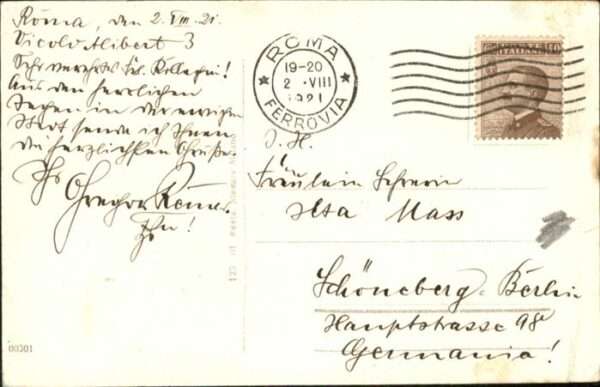 Roma, den 2. VIII. 21.
Vicolo Alibert 3
Sehr verehrtes Frl. Kollegin!
Aus den herrlichen
Tagen in der ewigen
Stadt sende ich Ihnen
die herzlichsten Grüße.
Ihr
Gregor
ROMA
19-20
2 · VIII
1921
FERROVIA
ITALIANE
40
Fräulein Lehrerin
Ilsa Mass
Schöneberg-Berlin
Hauptstrasse 98
Germania!
00301